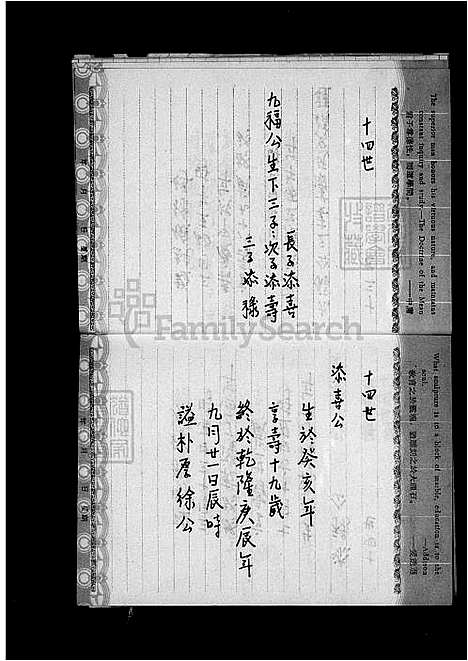 The superior man honors his virtuous nature, and maintains
constant inquiry and study—The Doctrine of the Mean
君子尊德性，而道學問。——中庸
十四世
九福公生下三子：
長子添喜
次子添壽
三子添祿
What sculpture is to a block of marble, education is to the
soul. —Addison
十四世
添喜公
生於癸亥年
享壽十九歲
終於乾隆庚辰年
九月廿一日辰時
諡朴厚徐公
FamilySearch